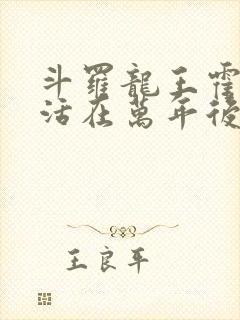 斗羅龍王霍
活在萬年後
王良平